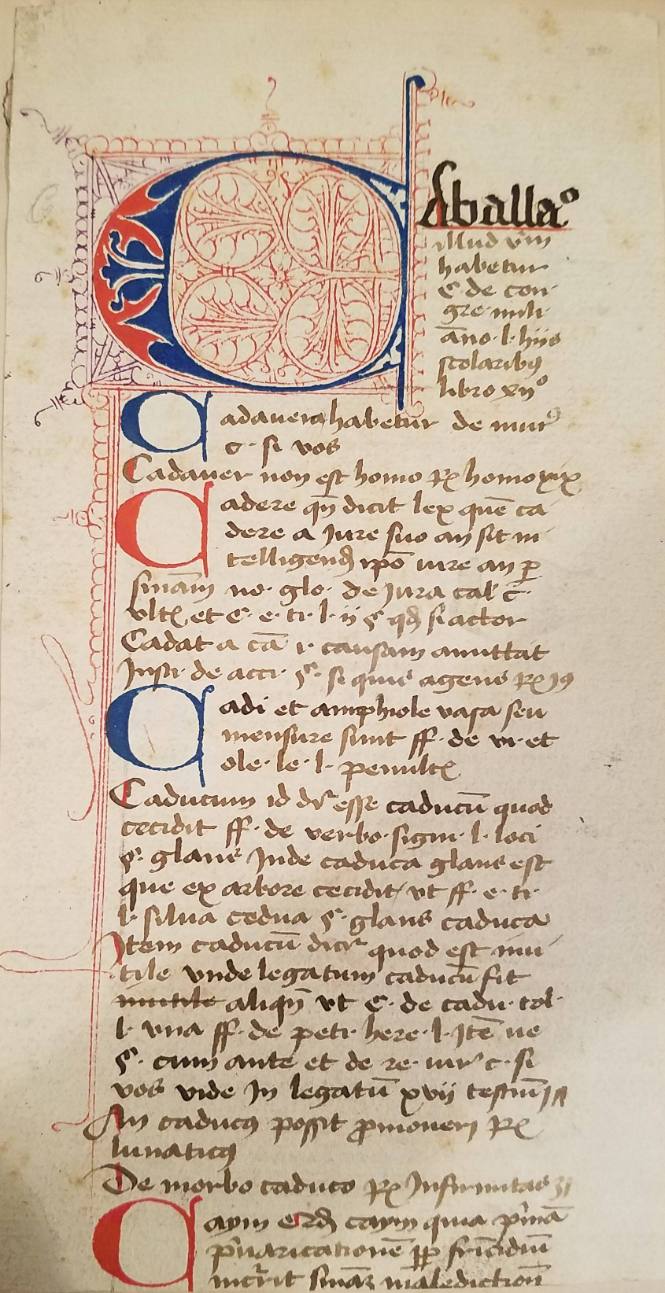 Caballa⁹
illud vīn
habetur
C de con
gre mili
āno · l · hijs
scolaribꝰ
libro xijᵒ
Cadauera habetur de mur͛
c · si vos
Cadauer non est homo Rͯ homo xix
Cadere qn̄ dicit lex quē ca
dere a Iure suo an sit in
telligend ipō iure an p
sniām no · glo · de Iura cal c̄
vlt et C · e · ti · l · ij § qd si actor
Cadat a cā r causam amittat
Insti de acci · § · si quis agens Rͯ 19
Cadi et amphiole vasa seu
mensure sunt ff · de vi · et
ole · le · l · penult
Caducum id dr esse caducū quod
cecidit ff · de verbo · signi · l · loci
§ · glans Inde caduca glans est
que ex arbore cecidit vt ff · e · ti ·
l · silua cedua § · glans caduca
Item caducū dicr quod est inu
tile vnde legatum caducū fit
inutile aliqn̄ vt C · de cadu · tol ·
l · vna ff · de peti · here · l · Itē ve
§ · cum ante et de re · iur c · si
vos vide In legatū xvij testiū
An caducꝰ possit promoueri Rͯ
lunaticꝰ
De morbo caduco Rͯ Infirmitas 31
Caym caym quia pimā
puaricationē pp fricidiū
incrit sniaꝫ maledictiōn